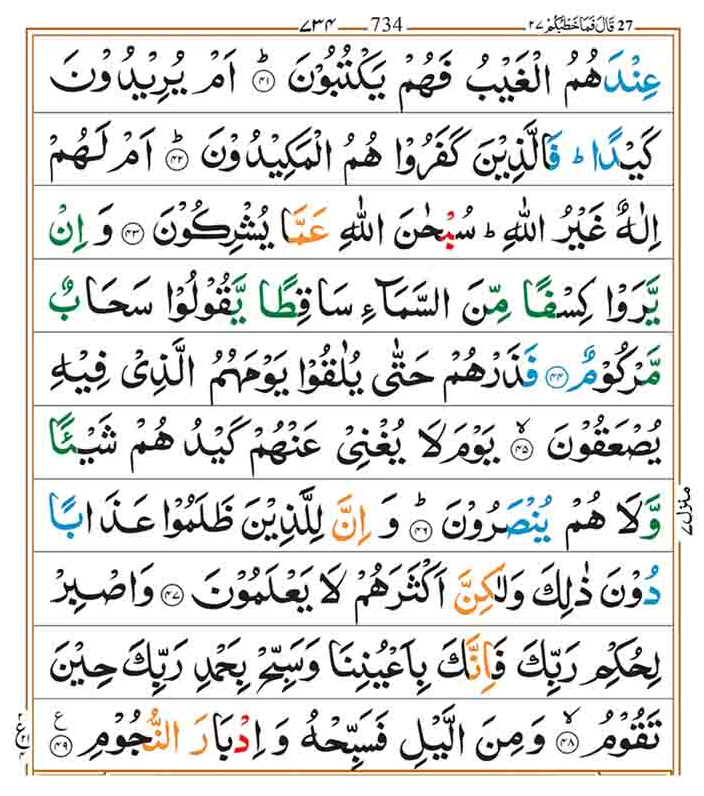 27 قَالَ فَمَا خَطْبُكُمْ ۲۷ 734 ۷۳۴
عِنْدَهُمُ الْغَيْبُ فَهُمْ يَكْتُبُوْنَ ؕ ﴿۴۱﴾ اَمْ يُرِيْدُوْنَ
كَيْدًا ؕ فَالَّذِيْنَ كَفَرُوْا هُمُ الْمَكِيْدُوْنَ ؕ ﴿۴۲﴾ اَمْ لَهُمْ
اِلٰهٌ غَيْرُ اللّٰهِ ؕ سُبْحٰنَ اللّٰهِ عَمَّا يُشْرِكُوْنَ ﴿۴۳﴾ وَ اِنْ
يَّرَوْا كِسْفًا مِّنَ السَّمَآءِ سَاقِطًا يَّقُوْلُوْا سَحَابٌ
مَّرْكُوْمٌ ﴿۴۴﴾ فَذَرْهُمْ حَتّٰى يُلٰقُوْا يَوْمَهُمُ الَّذِىْ فِيْهِ
يُصْعَقُوْنَ ۙ ﴿۴۵﴾ يَوْمَ لَا يُغْنِىْ عَنْهُمْ كَيْدُهُمْ شَيْـًٔا
وَّلَا هُمْ يُنْصَرُوْنَ ؕ ﴿۴۶﴾ وَ اِنَّ لِلَّذِيْنَ ظَلَمُوْا عَذَابًا
دُوْنَ ذٰلِكَ وَلٰكِنَّ اَكْثَرَهُمْ لَا يَعْلَمُوْنَ ﴿۴۷﴾ وَاصْبِرْ
لِحُكْمِ رَبِّكَ فَاِنَّكَ بِاَعْيُنِنَا وَسَبِّحْ بِحَمْدِ رَبِّكَ حِيْنَ
تَقُوْمُ ۙ ﴿۴۸﴾ وَمِنَ الَّيْلِ فَسَبِّحْهُ وَ اِدْبَارَ النُّجُوْمِ ﴿۴۹﴾ ع
منزل ۷